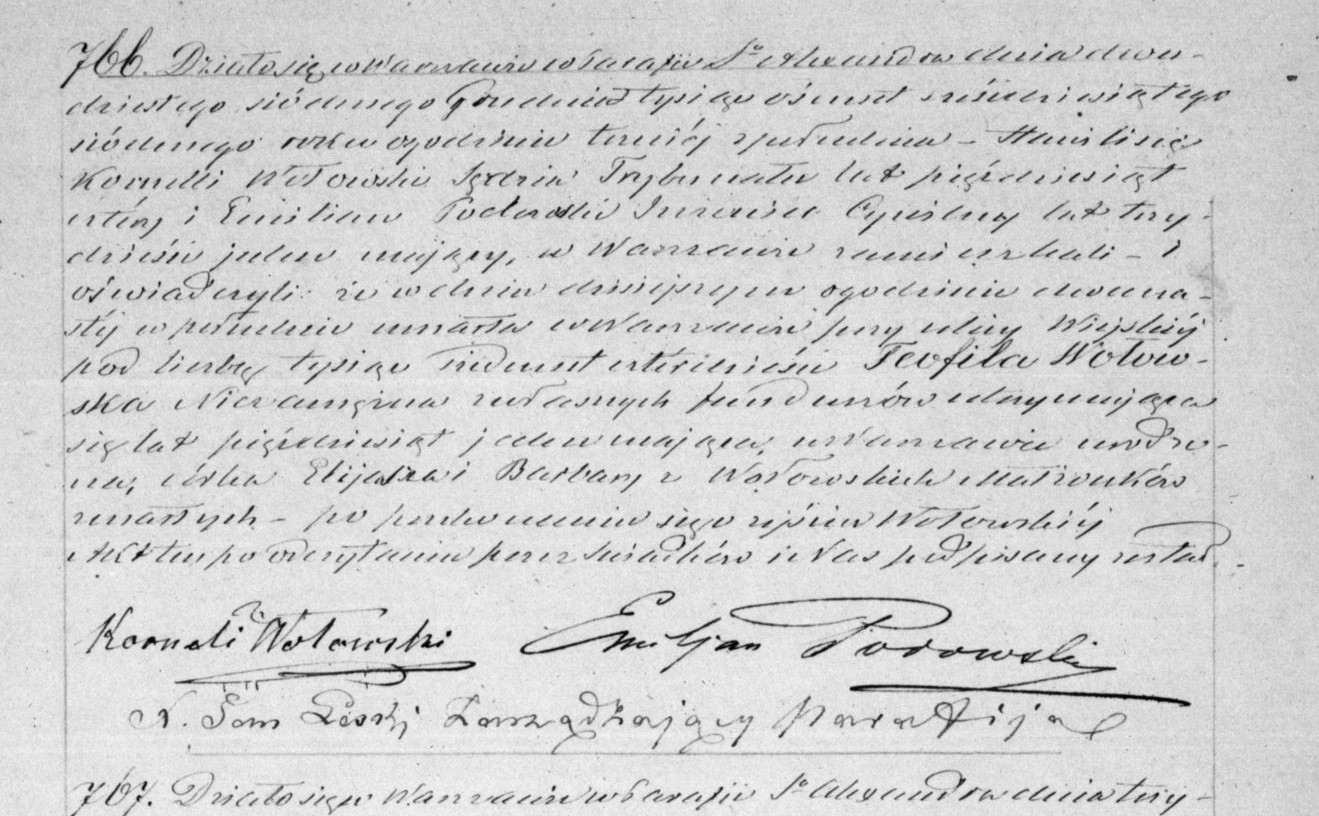 766. Działo się w Warszawie w Parafii Sgo Alexandra dnia dwu-
dziestego siódmego Grudnia tysiąc ośmset sześćdziesiątego
siódmego roku o godzinie trzeciéj z południa – Stawili się
Kornelli Wołowski Sędzia Trybunału lat pięćdziesiąt
cztery i Emilian Podowski Inżenier Cywilny lat trzy-
dzieści jeden mający, w Warszawie zamieszkali – i
oświadczyli że w dniu dzisiejszym o godzinie dwuna-
stéj w południe umarła w Warszawie przy ulicy Wiejskiéj
pod liczbą tysiąc siedmset czterdzieści Teofila Wołow-
ska Niezamężna z własnych funduszów utrzymująca
się lat pięćdziesiąt jeden mająca, w Warszawie urodzo-
na, córka Elijasza i Barbary z Wołowskich Małżonków
zmarłych – po przekonaniu się o zejściu Wołowskiéj
Akt ten po odczytaniu przez świadków i Nas podpisany został.
Korneli Wołowski Emiljan Podowski
X. Jan Zarządzający Parafiją
767. Działo się w Warszawie w Parafii Sgo Alexandra dnia trzy-